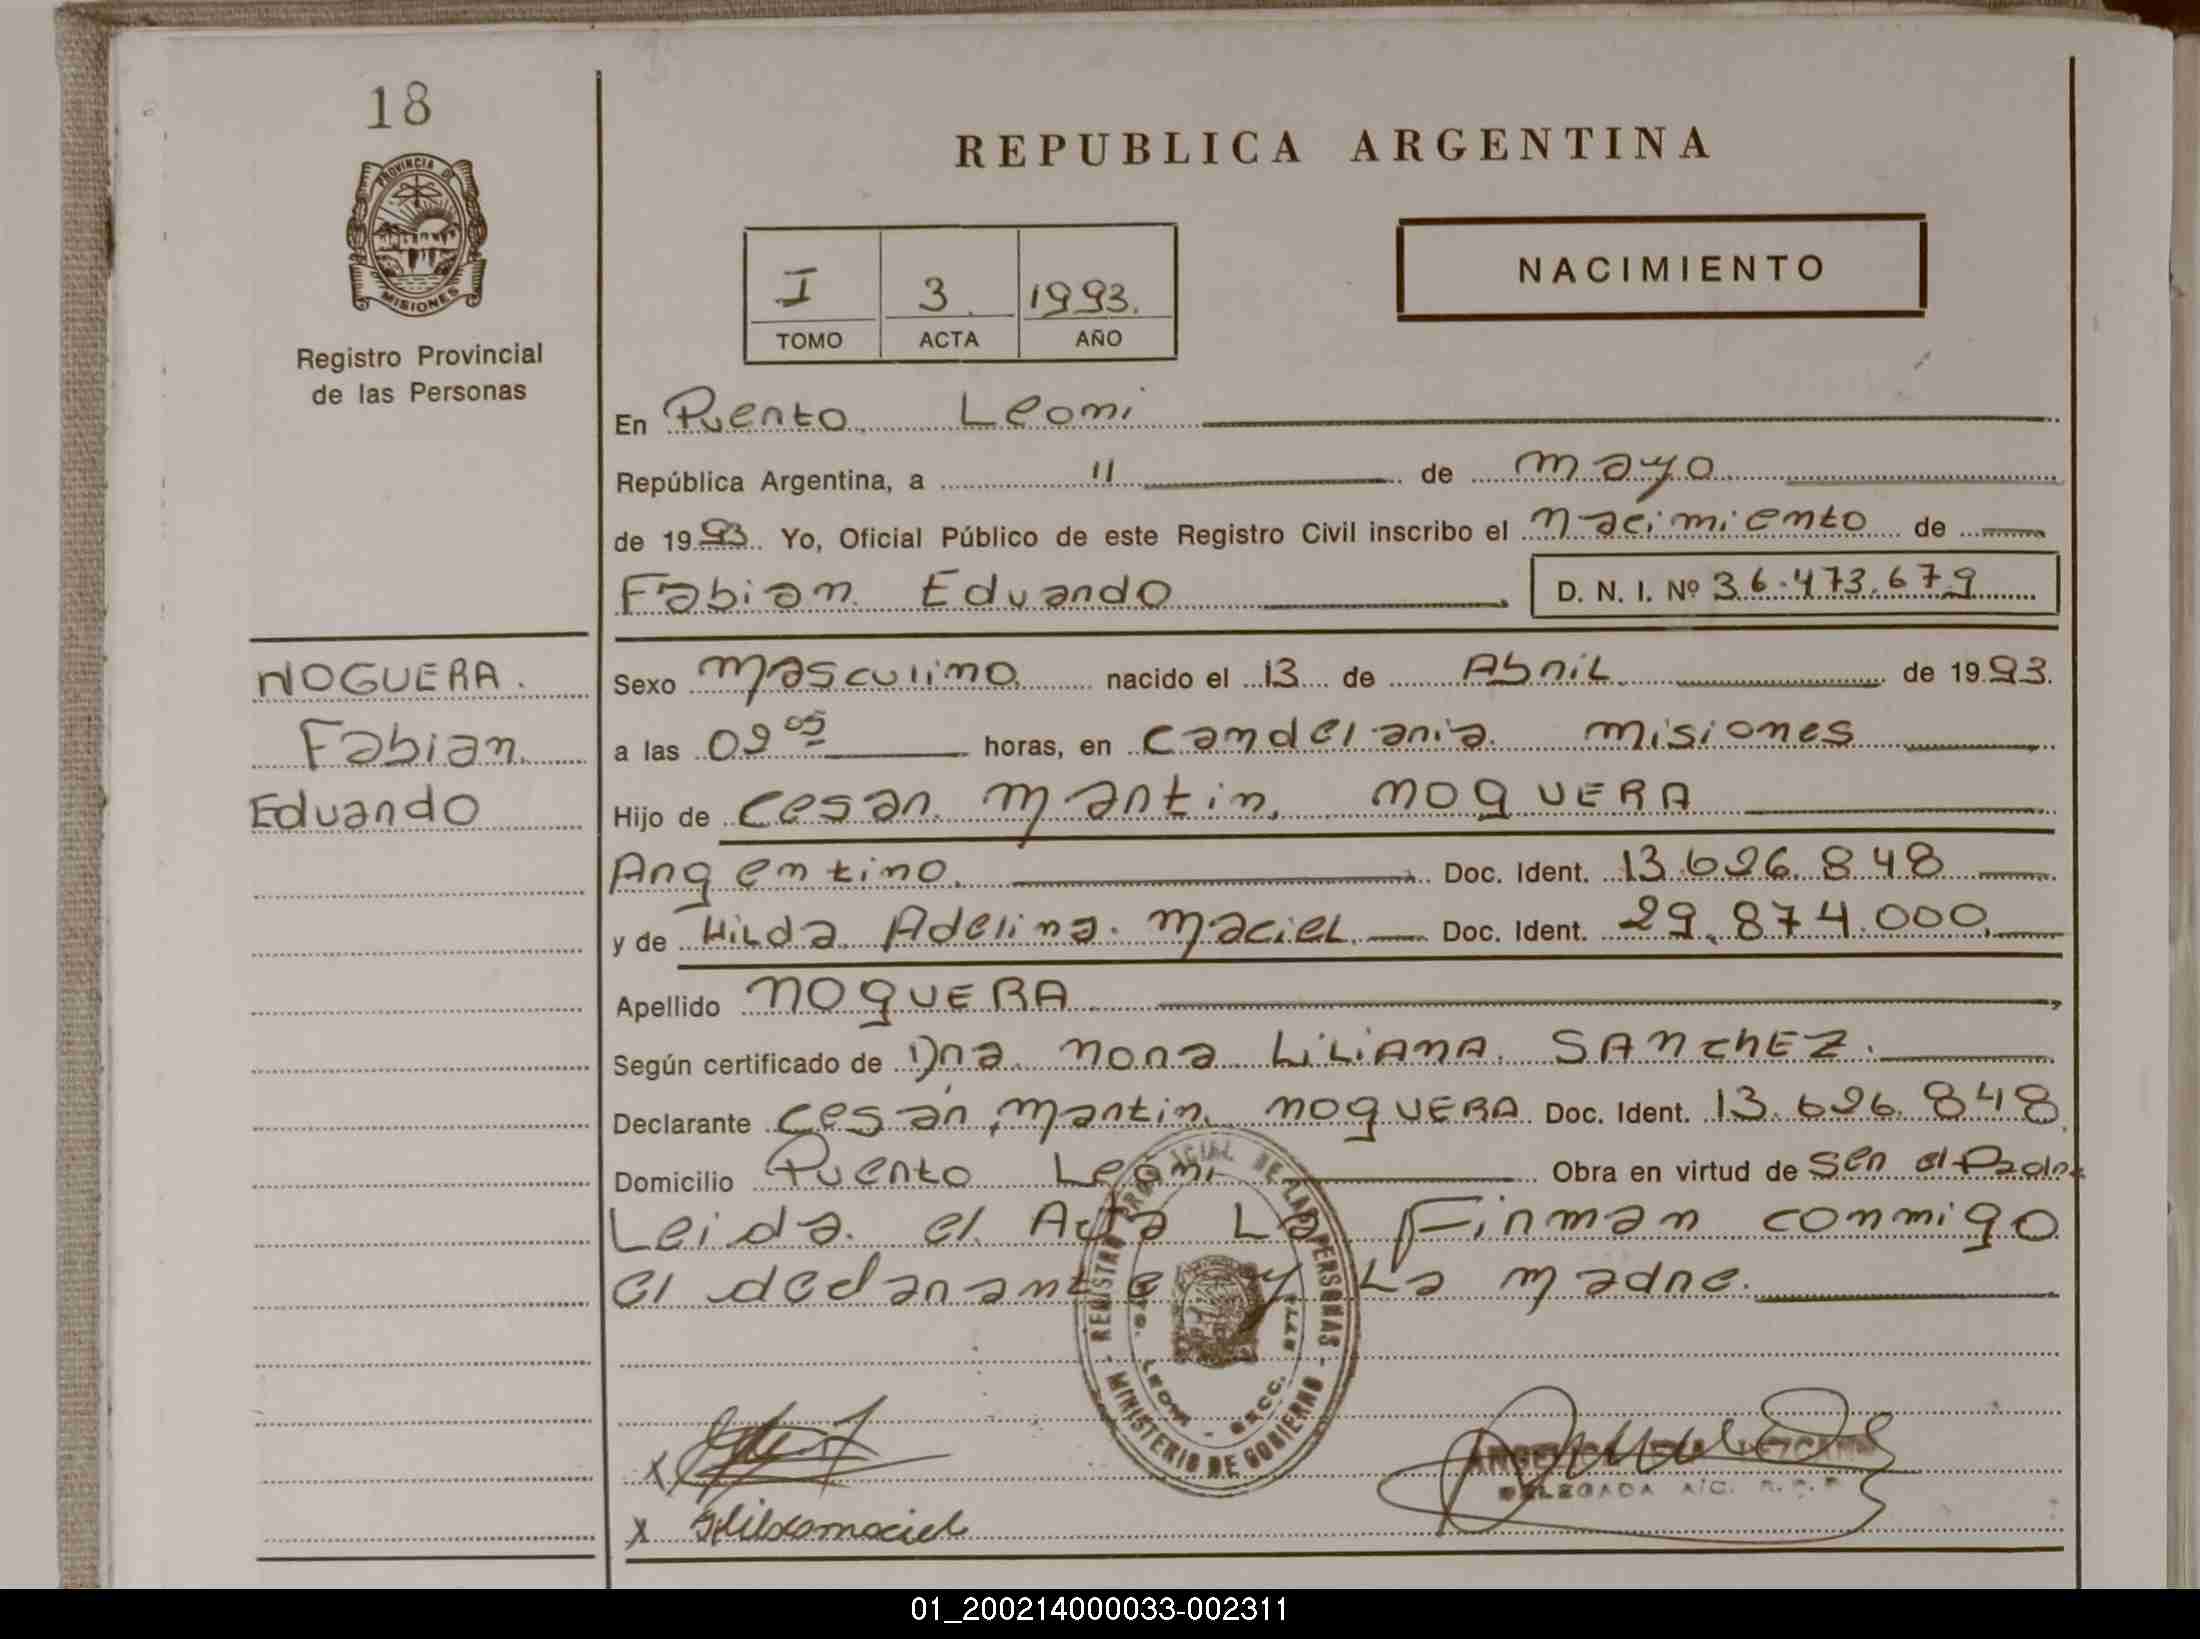 18
PROVINCIA DE
MISIONES
Registro Provincial
de las Personas
REPUBLICA ARGENTINA
I 3 1993.
TOMO ACTA AÑO
NACIMIENTO
En Puerto Leoni
República Argentina, a 11 de mayo
de 1993. Yo, Oficial Público de este Registro Civil inscribo el nacimiento de
Fabian Eduardo D. N. I. Nº 36.473.679
NOGUERA.
Fabian
Eduardo
Sexo masculino nacido el 13 de Abril de 1993.
a las 09 05 horas, en candelaria misiones
Hijo de Cesar martin NOgUERA
Argentino. Doc. Ident. 13.626.848
y de Hilda Adelina maciel Doc. Ident. 29.874.000
Apellido NOgUERA
Según certificado de Dra. Nora LiLiANA SANchEZ.
Declarante Cesar martin NOgUERA Doc. Ident. 13.626.848
Domicilio Puerto Leoni Obra en virtud de Ser el Padre
Leida el Acta La Firman conmigo
el declarante y La madre.
REGISTRO PROVINCIAL DE LAS PERSONAS
MINISTERIO DE GOBIERNO
x
x Hilda maciel
DELEGADA A/C. R. P. P.
01_200214000033-002311